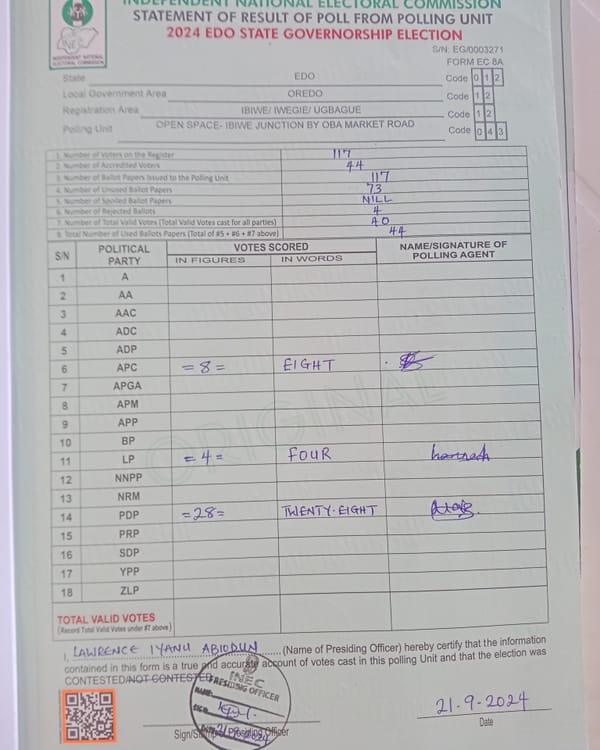 INDEPENDENT NATIONAL ELECTORAL COMMISSION
STATEMENT OF RESULT OF POLL FROM POLLING UNIT
2024 EDO STATE GOVERNORSHIP ELECTION
INEC
INDEPENDENT NATIONAL ELECTORAL COMMISSION
S/N: EG/0003271
FORM EC 8A
State EDO Code 0 1 2
Local Government Area OREDO Code 1 2
Registration Area IBIWE/ IWEGIE/ UGBAGUE Code 1 2
Polling Unit OPEN SPACE- IBIWE JUNCTION BY OBA MARKET ROAD Code 0 4 3
1. Number of Voters on the Register 117
2. Number of Accredited Voters 44
3. Number of Ballot Papers Issued to the Polling Unit 117
4. Number of Unused Ballot Papers 73
5. Number of Spoiled Ballot Papers NILL
6. Number of Rejected Ballots 4
7. Number of Total Valid Votes (Total Valid Votes cast for all parties) 40
8. Total Number of Used Ballots Papers (Total of #5 + #6 + #7 above) 44
S/N POLITICAL PARTY VOTES SCORED NAME/SIGNATURE OF POLLING AGENT
IN FIGURES IN WORDS
1 A
2 AA
3 AAC
4 ADC
5 ADP
6 APC =8= EIGHT
7 APGA
8 APM
9 APP
10 BP
11 LP =4= FOUR
12 NNPP
13 NRM
14 PDP =28= TWENTY-EIGHT
15 PRP
16 SDP
17 YPP
18 ZLP
ORIGINAL
TOTAL VALID VOTES
(Record Total Valid Votes under #7 above)
I, LAWRENCE IYANU ABIODUN (Name of Presiding Officer) hereby certify that the information
contained in this form is a true and accurate account of votes cast in this polling Unit and that the election was
CONTESTED/NOT CONTESTED
INEC
PRESIDING OFFICER
NAME:
SIGN:
21.9.2024
Sign/Stamp of Presiding Officer
Date